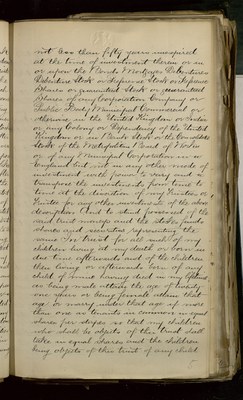 not less than fifty years unexpired
at the time of investment therein or in
or upon the Bonds Mortgages Debentures
Debenture Stock or Preference Stock or Preference
Shares or guaranteed Stock or guaranteed
Shares of any Corporation Company or
Public Body Municipal Commercial or
otherwise in the United Kingdom or India
or any Colony or Dependency of the United
Kingdom or in Bank Stock or the Consolidated
Stock of the Metropolitan Board of Works
or of any Municipal Corporation in
England but not in any other mode of
investment with power to vary and
transpose the investments from time to
time at the discretion of my Trustees or
Trustee for any other investments of the above
description And to stand possessed of the
said trust moneys and the stocks funds
shares and securities representing the
same In trust for all such of my
children living at my death or born in
due time afterwards and of the children
then living or afterwards born of any
child of mine having died in my lifetime
as being male attain the age of twenty
one years or being female attain that
age or marry under that age if more
than one as tenants in common in equal
shares per stirpes so that my children
who shall be objects of this trust shall
take in equal shares and the children
being objects of this trust of any child